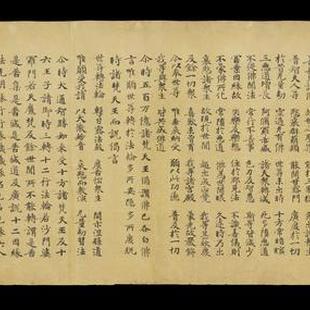 普智天人尊 哀愍群萌類 能開甘露門 廣度於一切
於昔無量劫 空過無有佛 世尊未出時 十方常暗冥
三惡道增長 阿修羅亦盛 諸天眾轉減 死多墮惡道
不從佛聞法 常行不善事 色力及智慧 斯等皆減少
罪業因緣故 失樂及樂想 住於邪見法 不識善儀則
不蒙佛所化 常墮於惡道 佛為世間眼 久遠時乃出
哀愍諸眾生 故現於世間 超出成正覺 我等甚欣慶
及餘一切眾 喜歎未曾有 我等諸宮殿 蒙光故嚴飾
今以奉世尊 唯垂哀納受 願以此功德 普及於一切
我等與眾生 皆共成佛道
尒時五百万億諸梵天王偈讚佛已各白佛
言唯願世尊轉於法輪多所安隱多所度脫
時諸梵天王而說偈言
世尊轉法輪 擊甘露法鼓 度苦惱眾生 開示涅槃道
唯願受我請 以大微妙音 哀愍而敷演 無量劫習法
尒時大通智勝如來受十方諸梵天王及十
六王子請即時三轉十二行法輪若沙門婆
羅門若天魔梵及餘世間所不能轉謂是苦
是苦集是苦滅是苦滅道及廣說十二因緣